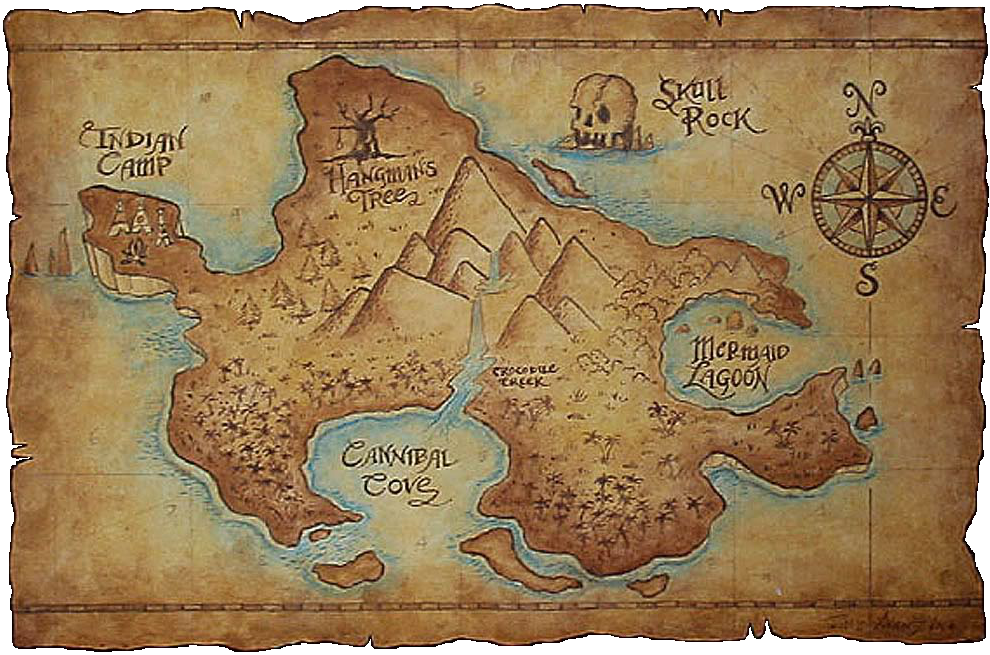 INDIAN
CAMP
HANGMAN'S
TREE
SKULL
ROCK
N
W
E
S
MERMAID
LAGOON
CROCODILE
CREEK
CANNIBAL
COVE